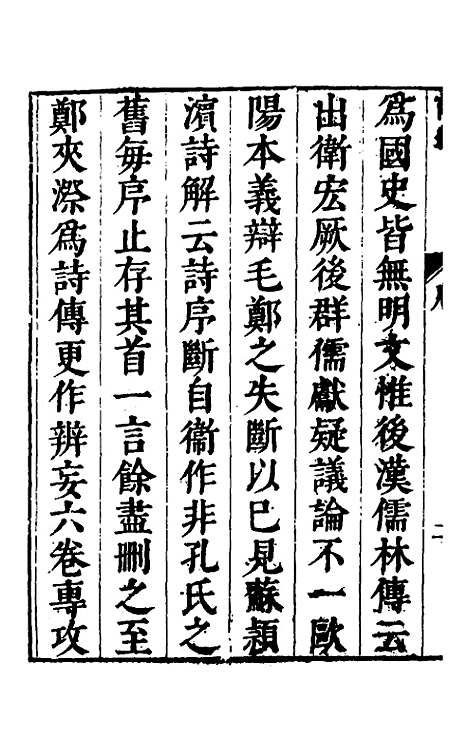 爲國史皆無明文惟後漢儒林傳云
出衛宏厥後群儒獻疑議論不一歐
陽本義辯毛鄭之失斷以己見蘇頴
濵詩解云詩序斷自衞作非孔氏之
舊每序止存其首一言餘盡刪之至
鄭夾漈爲詩傳更作辨妄六卷專攻